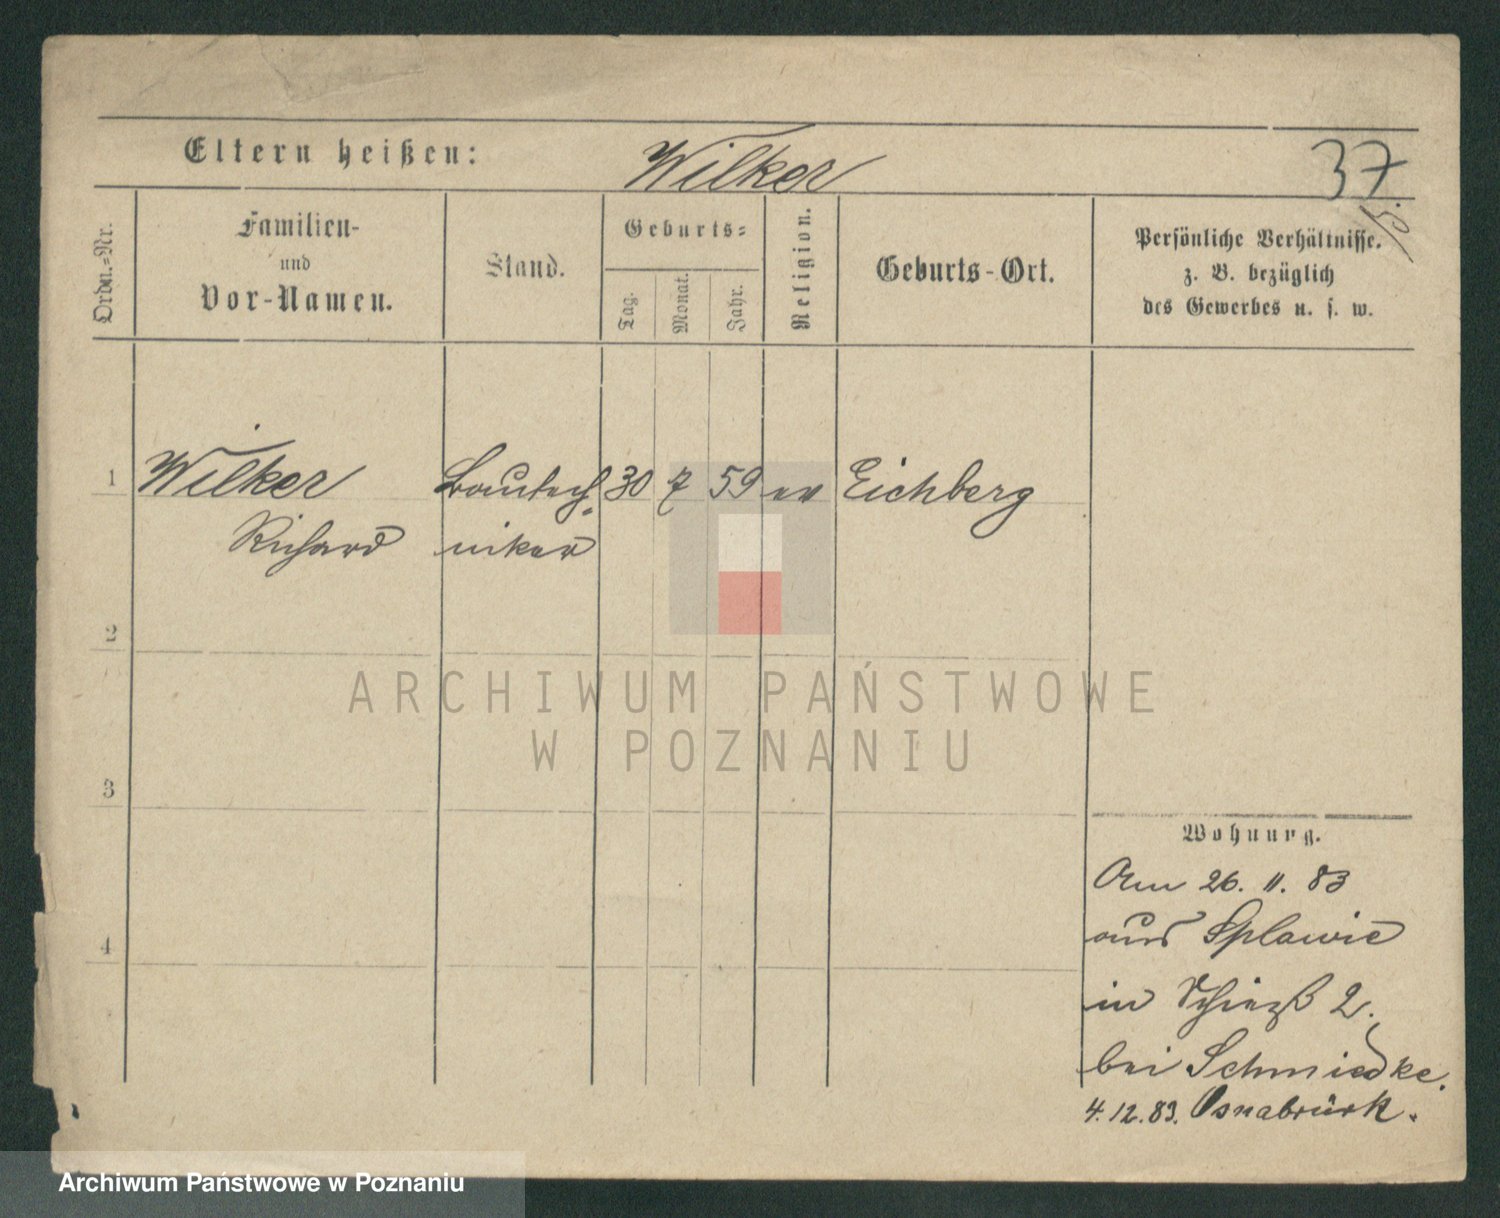 Eltern heißen: Wilker 37
Ordn.=Nr. Familien- und Vor-Namen. Stand. Geburts= Tag. Monat. Jahr. Religion. Geburts-Ort. Persönliche Verhältnisse. z. B. bezüglich des Gewerbes u. s. w.
1 Wilker Bautech= 30 7 59 ev Eichberg
Richard niker
2
ARCHIWUM PAŃSTWOWE
W POZNANIU
3
Wohnung.
Am 26. 11. 83
aus Splawie
4
in 2.
bei Schmiedke.
4.12.83. Osnabrück.
Archiwum Państwowe w Poznaniu